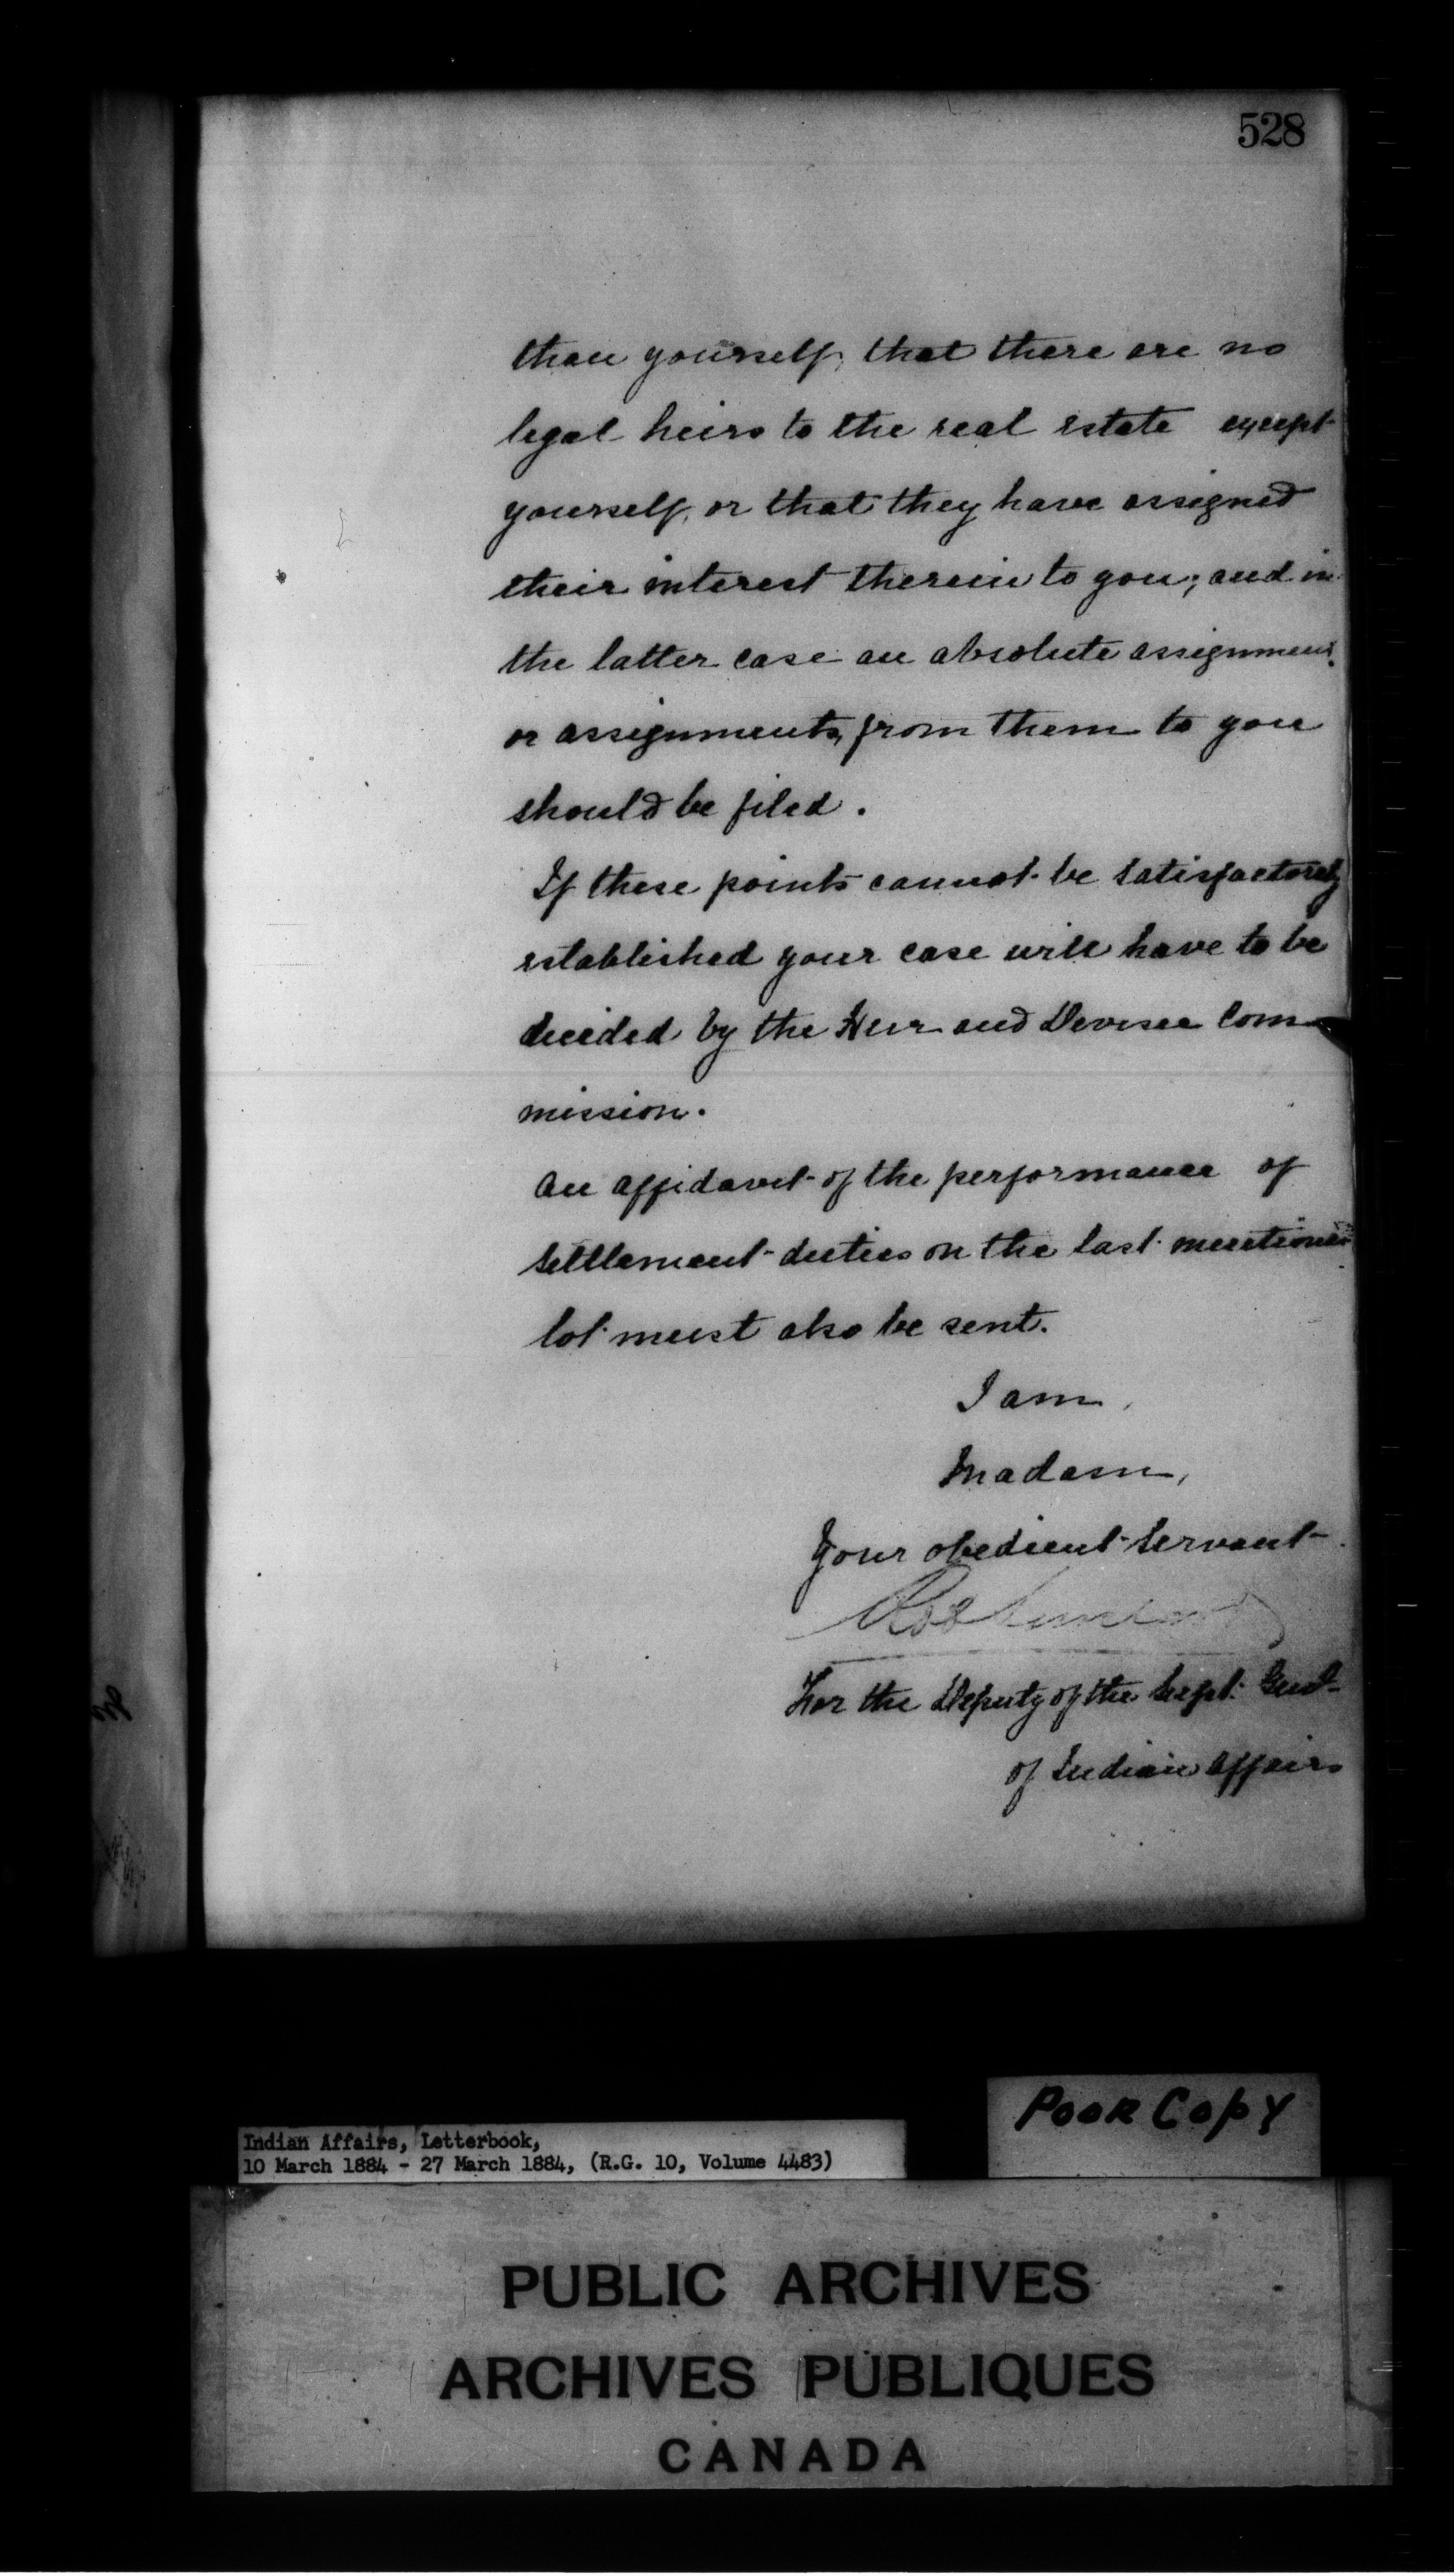 528
than yourself, that there are no
legal heirs to the real estate except
yourself, or that they have assigned
their interest therein to you; and in
the latter case an absolute assignment
or assignments, from them to you
should be filed.
If these points cannot be satisfactorily
established your case will have to be
decided by the Heir and Devisee Com-
mission.
An affidavit of the performance of
settlement duties on the last mentioned
lot must also be sent.
I am,
Madam,
Your obedient servant
For the Deputy of the Supt. Genl
of Indian Affairs
Poor Copy
Indian Affairs, Letterbook,
10 March 1884 - 27 March 1884, (R.G. 10, Volume 4483)
PUBLIC ARCHIVES
ARCHIVES PUBLIQUES
CANADA